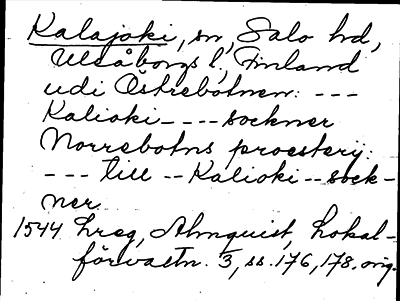 Kalajoki, sn, Salo hd,
Uleåborgs l, Finland
udi Östrebotnen: ---
Kalioki---- sockner
Norrebotns prostery:
--- till -- Kalioki -- sock-
ner
1544 Lreg, Almquist, Lokal-
förvaltn. 3, ss. 176, 178. orig.